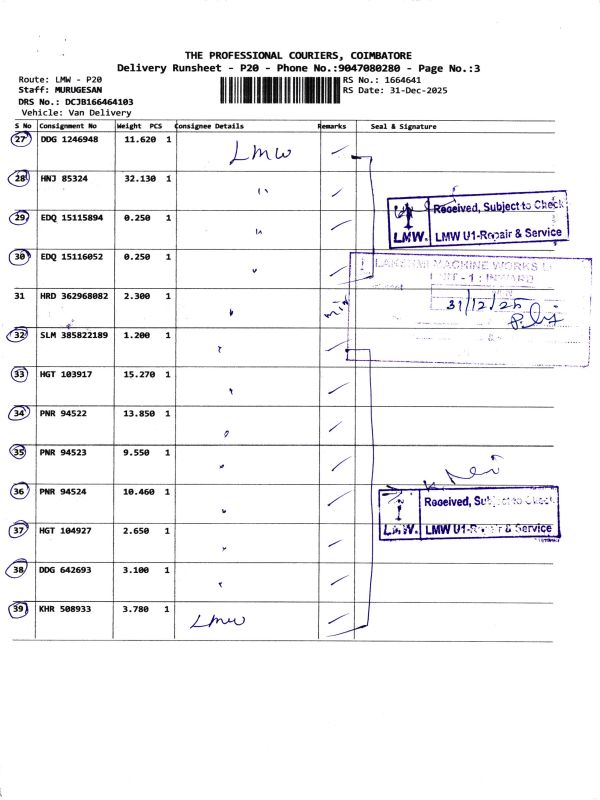 THE PROFESSIONAL COURIERS, COIMBATORE
Delivery Runsheet - P20 - Phone No.:9047080280 - Page No.:3
Route: LMW - P20
RS No.: 1664641
Staff: MURUGESAN
RS Date: 31-Dec-2025
DRS No.: DCJB166464103
Vehicle: Van Delivery
S No Consignment No Weight PCS Consignee Details Remarks Seal & Signature
27 DDG 1246948 11.620 1 LMW
28 HNJ 85324 32.130 1 "
29 EDQ 15115894 0.250 1 "
Received, Subject to Check
LMW. LMW U1-Repair & Service
30 EDQ 15116052 0.250 1 "
LAKSHMI MACHINE WORKS L
UNIT - 1 : INWARD
31 HRD 362968082 2.300 1 "
31/12/25
32 SLM 385822189 1.200 1 "
33 HGT 103917 15.270 1 "
34 PNR 94522 13.850 1 "
35 PNR 94523 9.550 1 "
36 PNR 94524 10.460 1 "
Received, Subject to Check
LMW. LMW U1-Repair & Service
37 HGT 104927 2.650 1 "
38 DDG 642693 3.100 1 "
39 KHR 508933 3.780 1 LMW